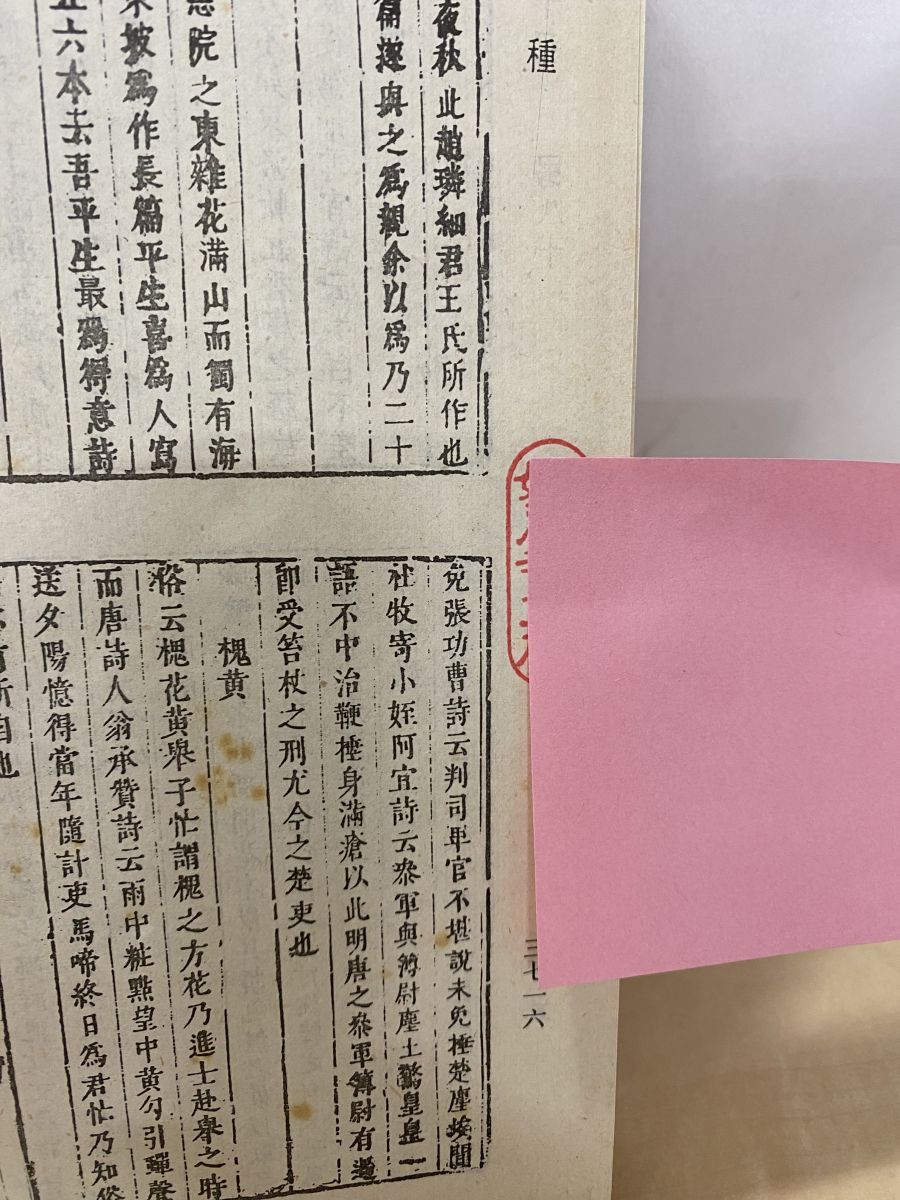 種
夜秋此趙璘細君王氏所作也
篇遂與之為親余以為乃二十
院之東雜花滿山而獨有海
東坡為作長篇平生喜為人寫
五六本去吾平生最為得意詩
免張功曹詩云判司卑官不堪說未免捶楚塵埃間
杜牧寄小姪阿宜詩云參軍與簿尉塵土驚皇皇一
語不中治鞭棰身滿瘡以此明唐之參軍簿尉有過
即受笞杖之刑尤今之楚吏也
槐黄
俗云槐花黄舉子忙謂槐之方花乃進士赴舉之時
而唐詩人翁承贊詩云雨中粧點望中黄勾引蟬聲
送夕陽憶得當年隨計吏馬啼終日為君忙乃知俗
所自也
三七一六